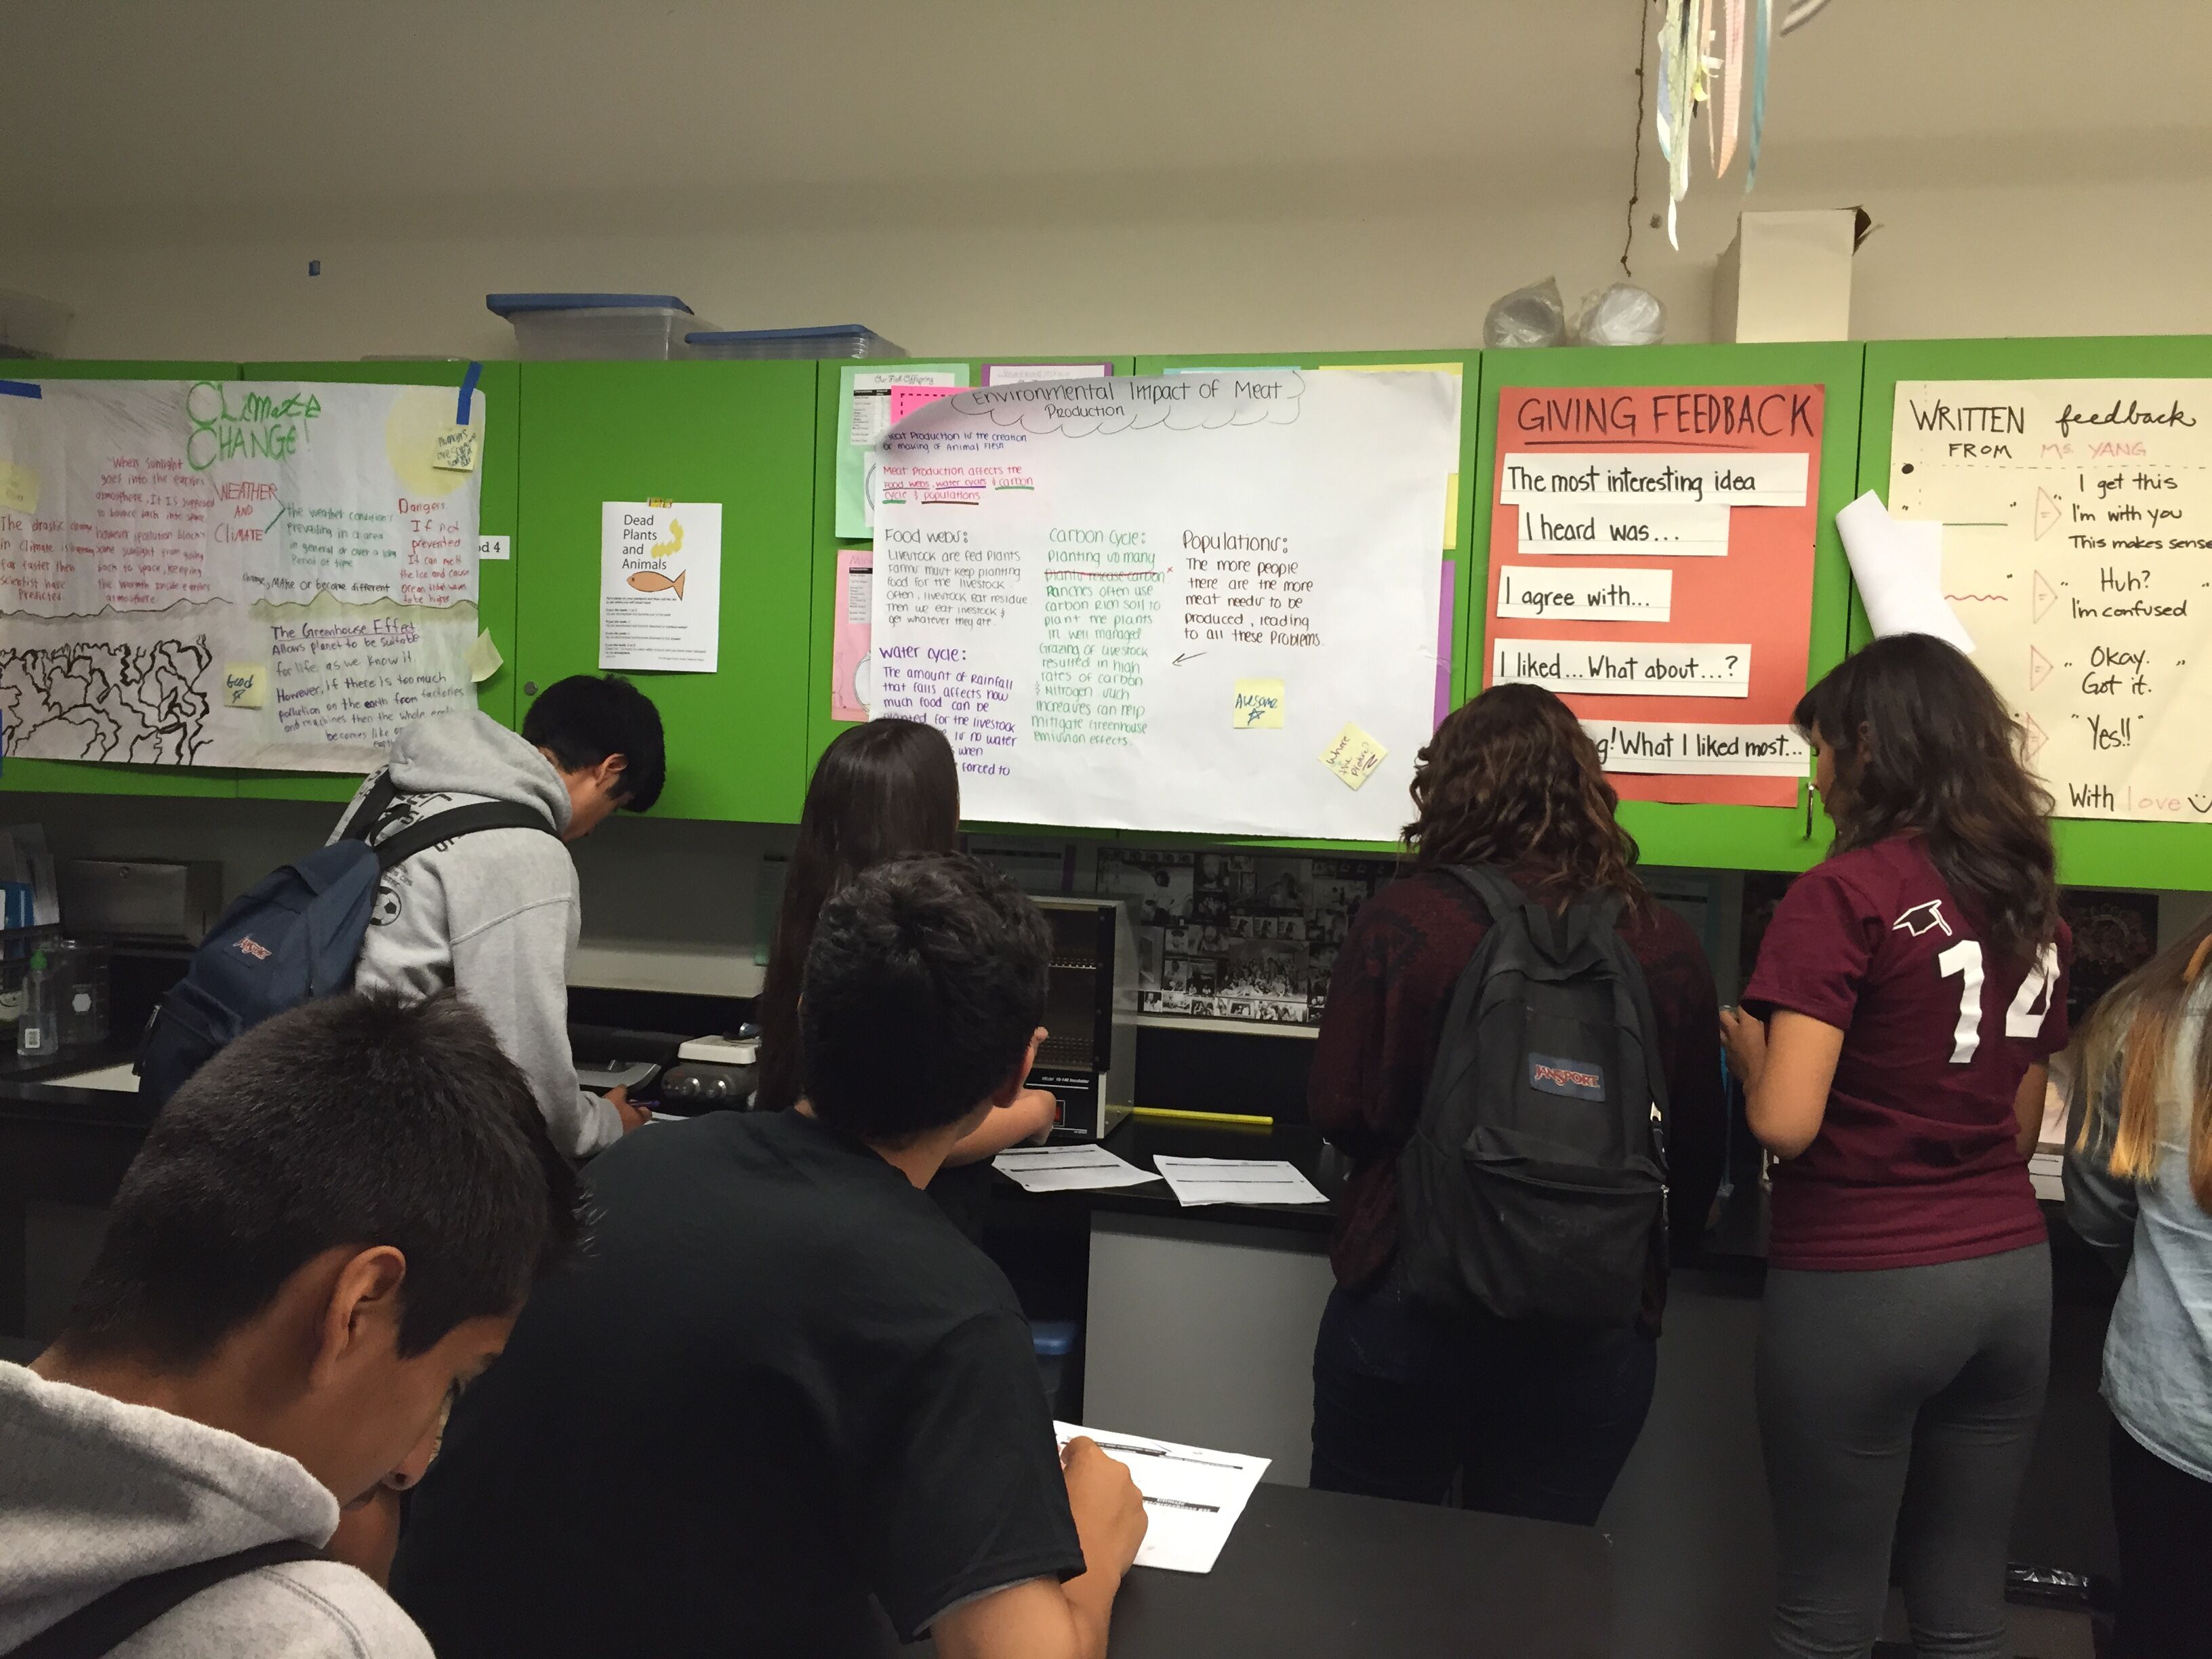 CLIMATE
CHANGE!
"When sunlight
goes into the earth's
atmosphere, It Is supposed
to bounce back into space
however pollution blocks
some sunlight from going
back to space, keeping
the warmth inside earths
atmosphere.
The drastic change
in Climate is
far faster then
scientist have
Predicted.
WEATHER
AND
CLIMATE
the weather conditions
prevailing in a area
in general or over a long
Period of time
change, MAKe or become different
Dangers.
If not
prevented
It can melt
the Ice and cause
Ocean tidal waves
to be higher
The Greenhouse Effect
Allows planet to be suitable
for life as we know it.
However, if there is too much
pollution on the earth from factories
and machines then the whole
becomes like
Good
d 4
Dead
Plants
and
Animals
Our Fish Offspring
Environmental Impact of Meat
Production
Meat Production is the creation
or making of Animal Flesh
Meat Production affects the
Food webs, water cycles & carbon
cycle & populations
Food webs:
Livestock are fed Plants
Farms must keep planting
food for the livestock.
Often, livestock eat residue.
Then we eat livestock &
get whatever they ate.
Water cycle:
The amount of Rainfall
that falls affects how
much food can be
planted for the livestock
is no water
when
forced to
Carbon Cycle:
Planting so many
plants release carbon
Ranches often use
carbon rich soil to
plant the plants
in well managed
Grazing of livestock
resulted in high
rates of carbon
& Nitrogen such
increases can help
mitigate Greenhouse
emission effects.
Populations:
The more people
there are the more
meat needs to be
produced, leading
to all these problems.
Awesome
Where
the
GIVING FEEDBACK
The most interesting idea
I heard was...
I agree with...
I liked...What about...?
g! What I liked most...
WRITTEN feedback
FROM MS YANG
I get this
I'm with you
This makes sense
Huh?
I'm confused
" Okay. "
Got it.
"Yes!!"
With love
JANSPORT
JANSPORT
14